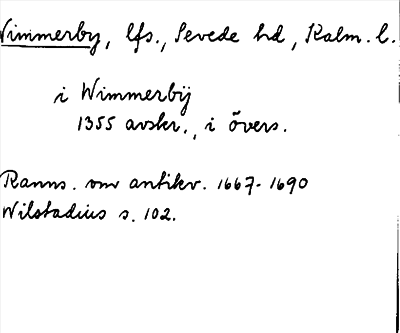 Vimmerby, lfs., Sevede hd, Kalm. l.
i Wimmerbÿ
1355 avskr., i övers.
Ranns. om antikv. 1667-1690
Wilstadius s. 102.